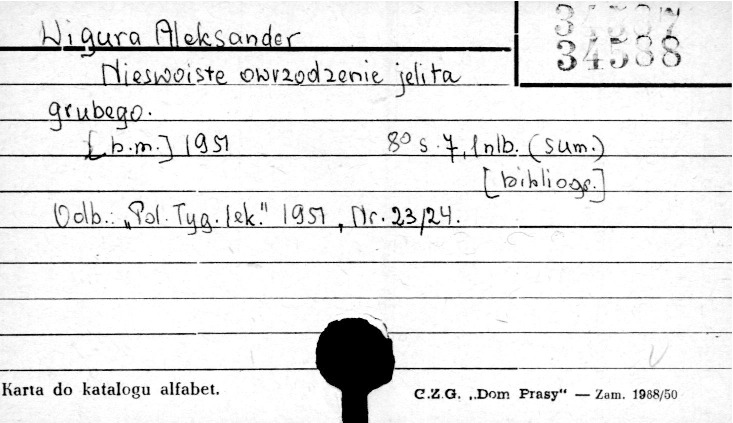 Wigura Aleksander
34587
34588
Nieswoiste owrzodzenie jelita
grubego.
[b.m.] 1951 8° s. 7, 1 nlb. (sum.)
[bibliogr.]
Odb.: „Pol. Tyg. lek." 1951, Nr. 23/24.
Karta do katalogu alfabet.
C.Z.G. „Dom Prasy“ — Zam. 1988/50